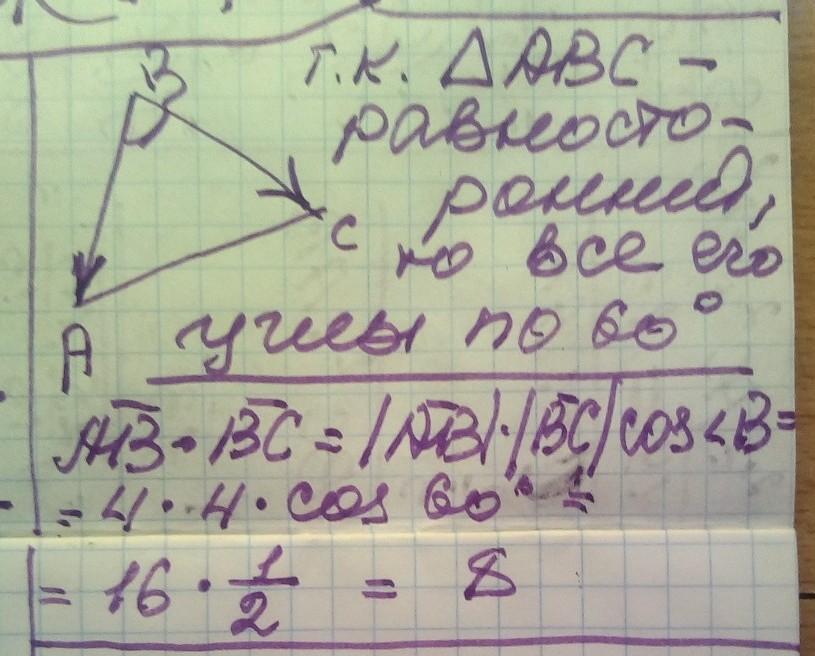 B
т.к. △ABC –
равносто-
ронний,
C
то все его
A
углы по 60°
A̅B̅ · B̅C̅ = |A̅B̅| · |B̅C̅| cos < B =
= 4 · 4 · cos 60° =
= 16 · 1/2 = 8